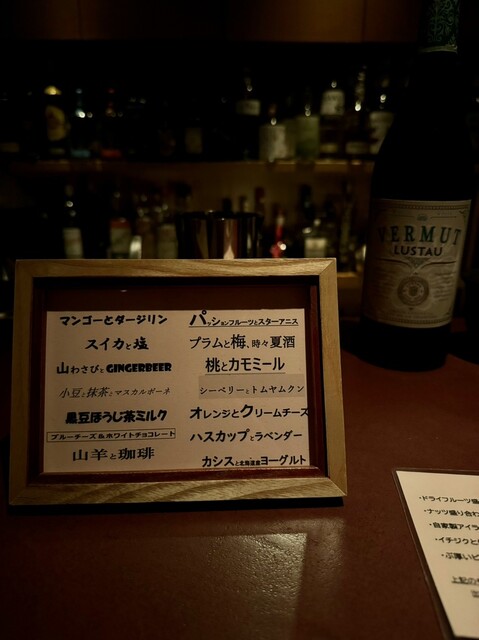 マンゴーとダージリン
スイカと塩
山わさびとGINGERBEER
小豆と抹茶とマスカルポーネ
黒豆ほうじ茶ミルク
ブルーチーズ&ホワイトチョコレート
山羊と珈琲
パッションフルーツとスターアニス
プラムと梅、時々夏酒
桃とカモミール
シーベリーとトムヤムクン
オレンジとクリームチーズ
ハスカップとラベンダー
カシスと北海道産ヨーグルト
VERMUT
LUSTAU
・ドライフルーツ盛
・ナッツ盛り合わ
・自家製アイラ
・イチジクと
・ぶ厚いビ
上記の